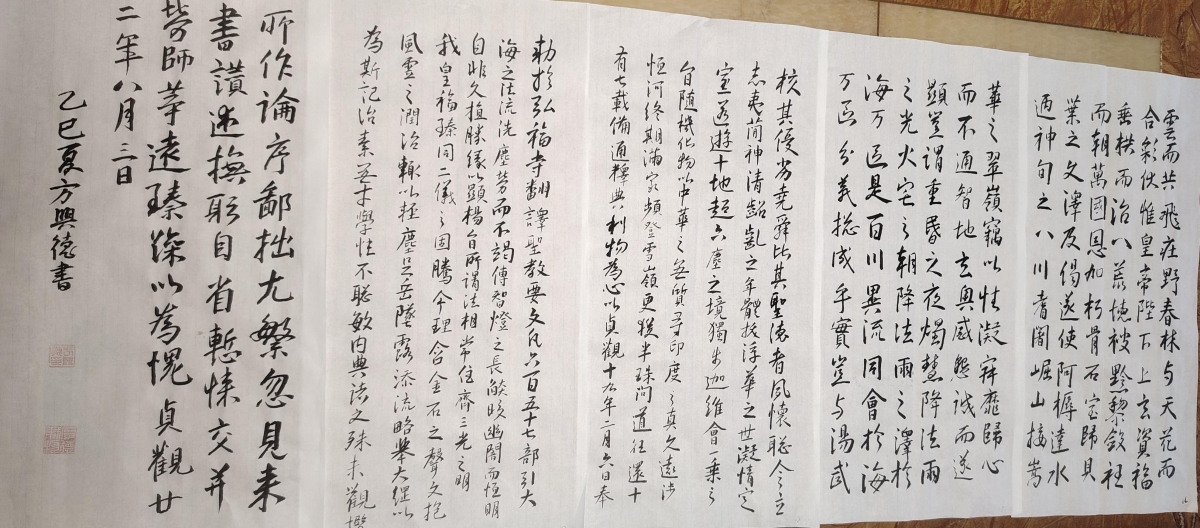 雲而共飛莊野春林与天花而
合彩伏惟皇帝陛下上玄資福
垂拱而治八荒德被黔黎斂衽
而朝萬國恩加朽骨石室歸貝
葉之文澤及偈遂使阿耨達水
通神甸之八川耆闍崛山接嵩
華之翠嶺竊以性凝寂靡歸心
而不通智地玄奧感懇誠而遂
顯豈謂重昏之夜燭慧降法雨
之光火宅之朝降法雨之澤於
海万區是百川異流同會於海
万區分義摠成乎實豈与湯武
挍其優劣堯舜比其聖德者風懷聡令立
志夷簡神清齠齔之年體拔浮華之世凝情定
室遊十地超六塵之境獨步迦維會一乘之
旨隨機化物以中華之無質尋印度之真文遠涉
恒河終期滿字頻登雪嶺更獲半珠問道往還十
有七載備通釋典利物為心以貞觀十九年二月六日奉
勑於弘福寺翻譯聖教要文凡六百五十七部引大
海之法流洗塵勞而不竭傳智燈之長焰皎幽闇而恒明
自非久植勝緣以顯楊旨所謂法相常住齊三光之明
我皇福臻同二儀之固騰今理含金石之聲文抱
風雲之潤治輒以輕塵足岳墜露添流略舉大綱以
為斯記治素無才學性不聰敏內典諸文殊未觀攬
所作論序鄙拙尤繁忽見来
書讃述撫躬自省慙悚交并
勞師等遠臻深以為愧貞觀廿
二年八月三日
乙巳夏方興德書